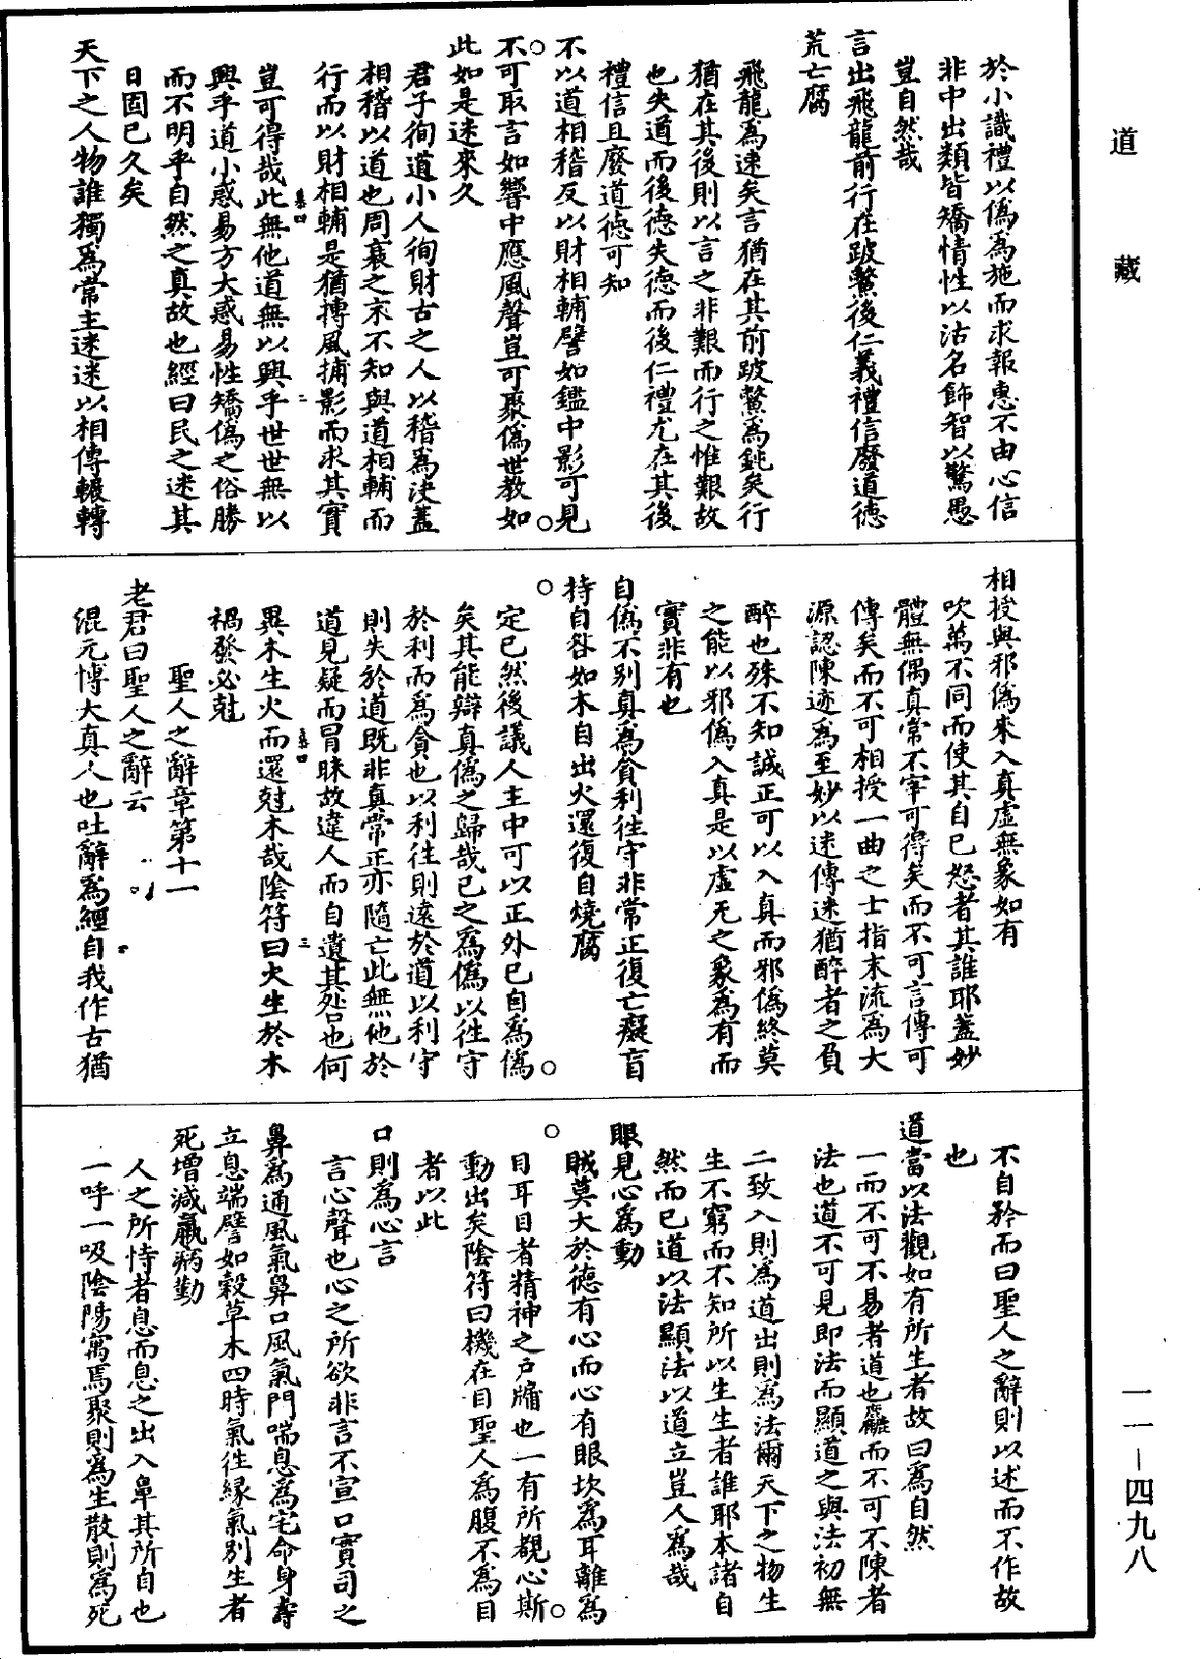 道藏
於小識禮以僞爲施而求報惠不由心信
非中出類皆矯情性以沽名飾智以驚愚
豈自然哉
言出飛龍前行在跛鱉後仁義禮信廢道德
荒亡腐
飛龍爲速矣言猶在其前跛鱉爲鈍矣行
猶在其後則以言之非艱而行之惟艱故
也失道而後德失德而後仁禮尤在其後
禮信且廢道德可知
不以道相稽反以財相輔譬如鑑中影可見
不可取言如響中應風聲豈可聚僞世教如
此如是迷來久
君子徇道小人徇財古之人以稽爲決蓋
相稽以道也周衰之末不知與道相輔而
行而以財相輔是猶搏風捕影而求其實
豈可得哉此無他道無以興乎世世無以
興乎道小惑易方大惑易性矯僞之俗勝
而不明乎自然之真故也經曰民之迷其
日固已久矣
天下之人物誰獨爲常主迷迷以相傳輾轉
相授與邪僞來入真虛無象如有
吹萬不同而使其自已怒者其誰耶蓋妙
體無偶真常不宰可得矣而不可言傳可
傳矣而不可相授一曲之士指末流爲大
源認陳迹爲至妙以迷傳迷猶醉者之負
醉也殊不知誠正可以入真而邪僞終莫
之能以邪僞入真是以虛无之象爲有而
實非有也
自僞不別真爲貪利往守非常正復亡癡盲
持自咎如木自出火還復自燒腐
定已然後議人主中可以正外已自爲僞
矣其能辯真僞之歸哉已之爲僞以往守
於利而爲貪也以利往則遠於道以利守
則失於道既非真常正亦隨亡此無他於
道見疑而冒昧故違人而自遺其咎也何
異木生火而還尅木哉陰符曰火生於木
禍發必尅
聖人之辭章第十一
老君曰聖人之辭云
混元博大真人也吐辭爲經自我作古猶
不自矜而曰聖人之辭則以述而不作故
也
道當以法觀如有所生者故曰爲自然
一而不可不易者道也麤而不可不陳者
法也道不可見即法而顯道之與法初無
二致入則爲道出則爲法爾天下之物生
生不窮而不知所以生生者誰耶本諸自
然而已道以法顯法以道立豈人爲哉
眼見心爲動
賊莫大於德有心而心有眼坎爲耳離爲
目耳目者精神之戶牖也一有所覩心斯
動出矣陰符曰機在目聖人爲腹不爲目
者以此
口則爲心言
言心聲也心之所欲非言不宣口實司之
鼻爲通風氣鼻口風氣門喘息爲宅命身壽
立息端譬如穀草木四時氣往緣氣別生者
死增減羸病勤
人之所恃者息而息之出入鼻其所自也
一呼一吸陰陽寓焉聚則爲生散則爲死
一一－四九八